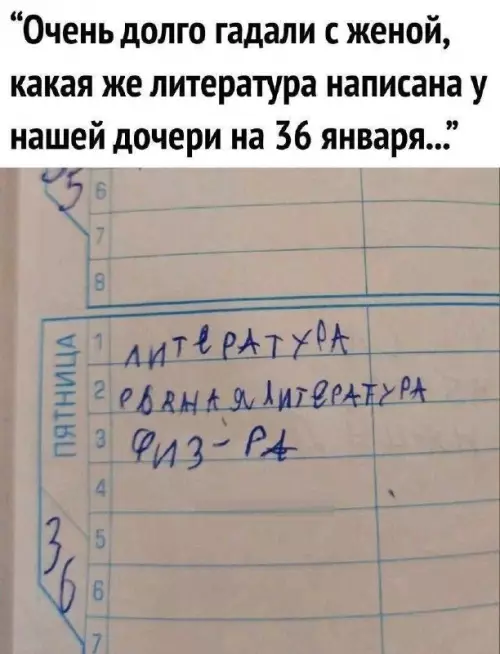 “Очень долго гадали с женой,
какая же литература написана у
нашей дочери на 36 января...”
35
6
7
8
ПЯТНИЦА
1 ЛИТЕРАТУРА
2 РВАНАЯ ЛИТЕРАТУРА
3 ФИЗ-РА
4
5
36
6
7